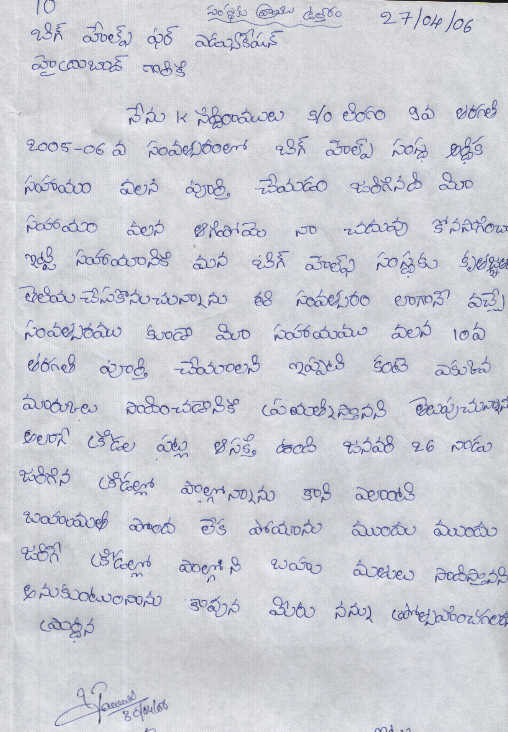 10
సంస్థకు వ్రాయు ఉత్తరం
27/04/06
బిగ్ హెల్ప్ ఫర్ ఎడ్యుకేషన్
హైదరాబాద్ గారికి
నేను K సిద్దిరాములు S/o లింగం 9వ తరగతి
2005-06 వ సంవత్సరంలో బిగ్ హెల్ప్ సంస్థ ఆర్థిక
సహాయం వలన పూర్తి చేయడం జరిగినది మీ
సహాయం వలన ఆగిపోయె నా చదువు కొనసాగించు
ఇట్టి సహాయానికి మన బిగ్ హెల్ప్ సంస్థకు కృతజ్ఞత
తెలియచేసుకొనుచున్నాను ఈ సంవత్సరం లాగానే వచ్చే
సంవత్సరము కుడా మీ సహాయము వలన 10వ
తరగతి పూర్తి చేయాలని ఇప్పటి కంటె ఎకువ
మార్కులు సాధించడానికి ప్రయత్నిస్తానని తెలుపుచున్నాను
అలాగే క్రీడల పట్ల ఆసక్తి ఉంది జనవరి 26 నాడు
జరిగిన క్రీడల్లో పాల్గొన్నాను కాని ఎలాంటి
బహుమతి పొంద లేక పోయాను ముందు ముందు
జరిగే క్రీడల్లో పాల్గొని బహు మతులు సాధిస్తానని
అనుకుంటున్నాను కావున మీరు నన్ను ప్రోత్సహించగలరని
మనవి
30/04/06